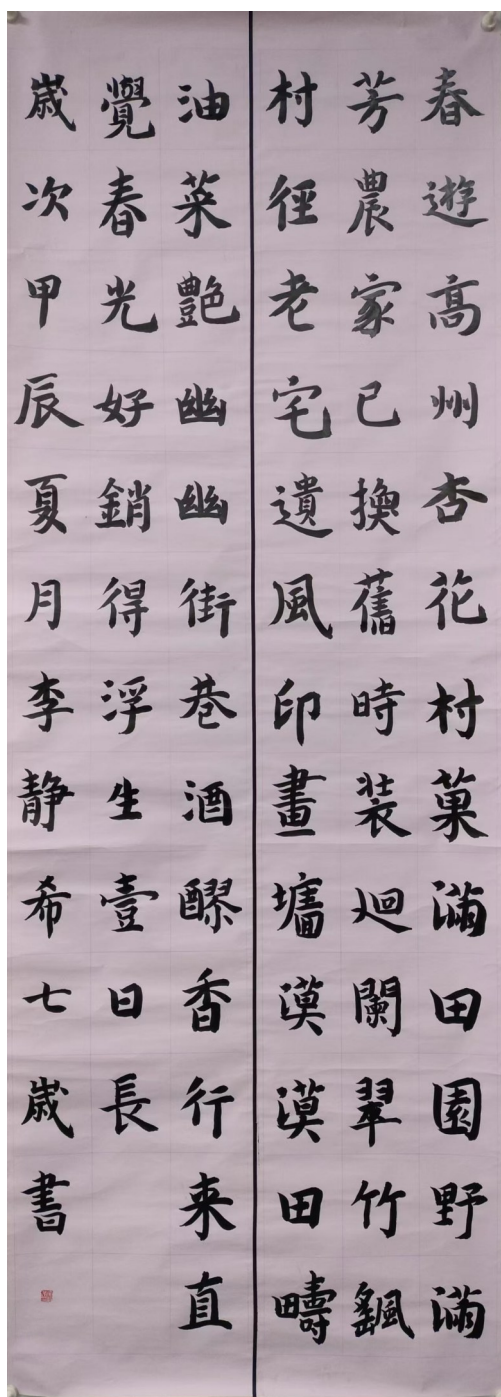 春遊高州杏花村菓滿田園野滿
芳農家已換舊時装廻闌翠竹飄
村徑老宅遺風印畫墻漠漠田疇
油菜艷幽幽街巷酒醪香行来直
覺春光好銷得浮生壹日長
歲次甲辰夏月李靜希七歲書